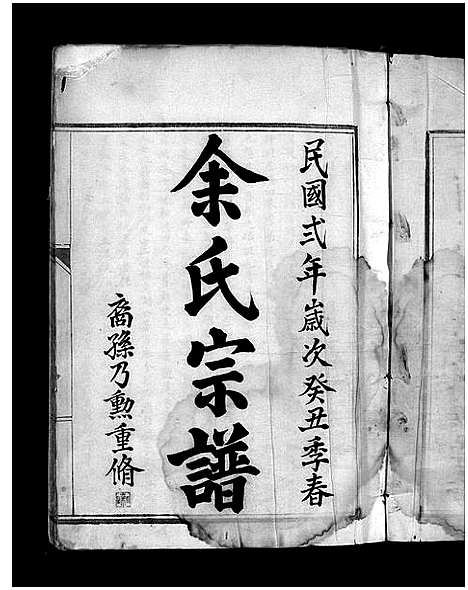 民國弍年嵗次癸丑季春
余氏宗譜
裔孫乃勲重脩